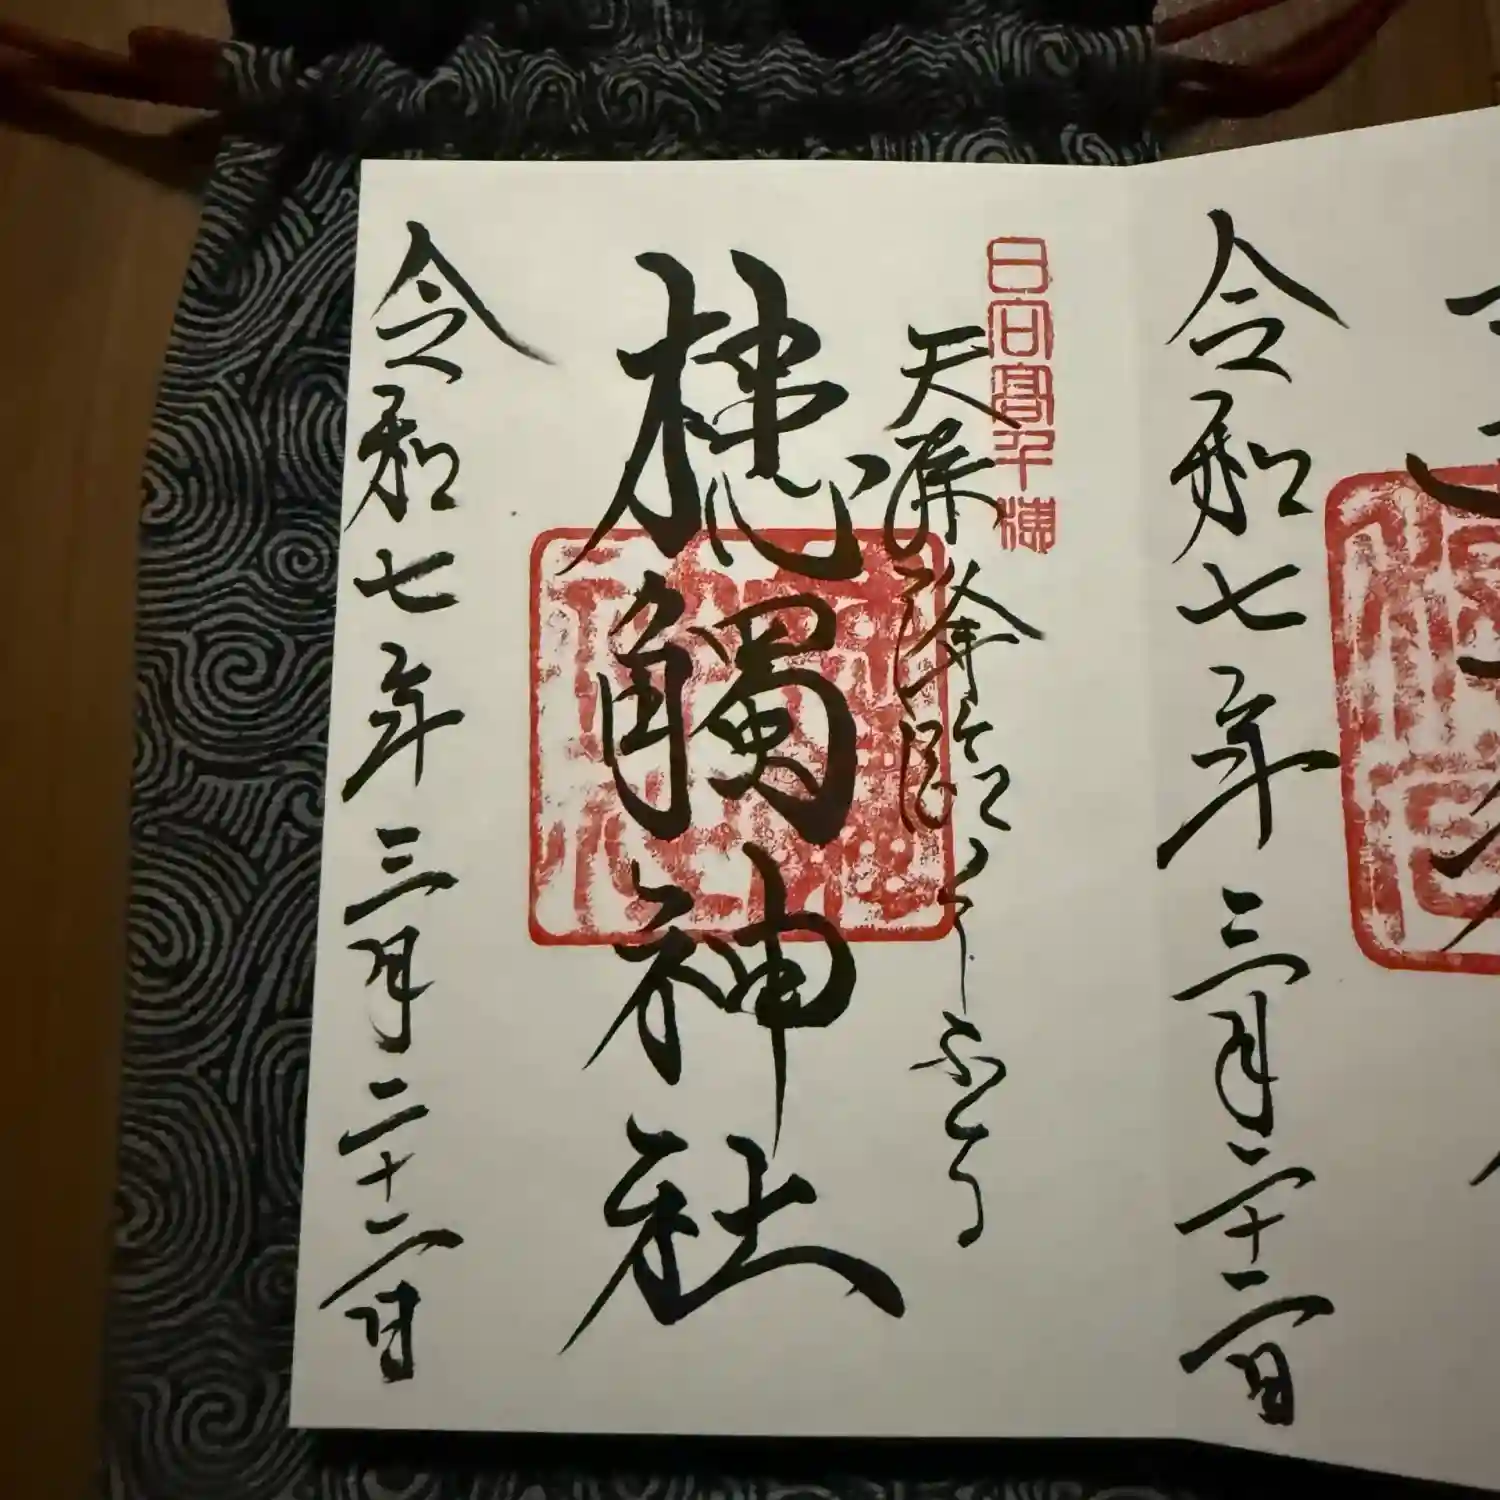 令和七年三月二十二日
日向高千穂
天孫降臨くしふる
槵觸神社
令和七年三月二十二日